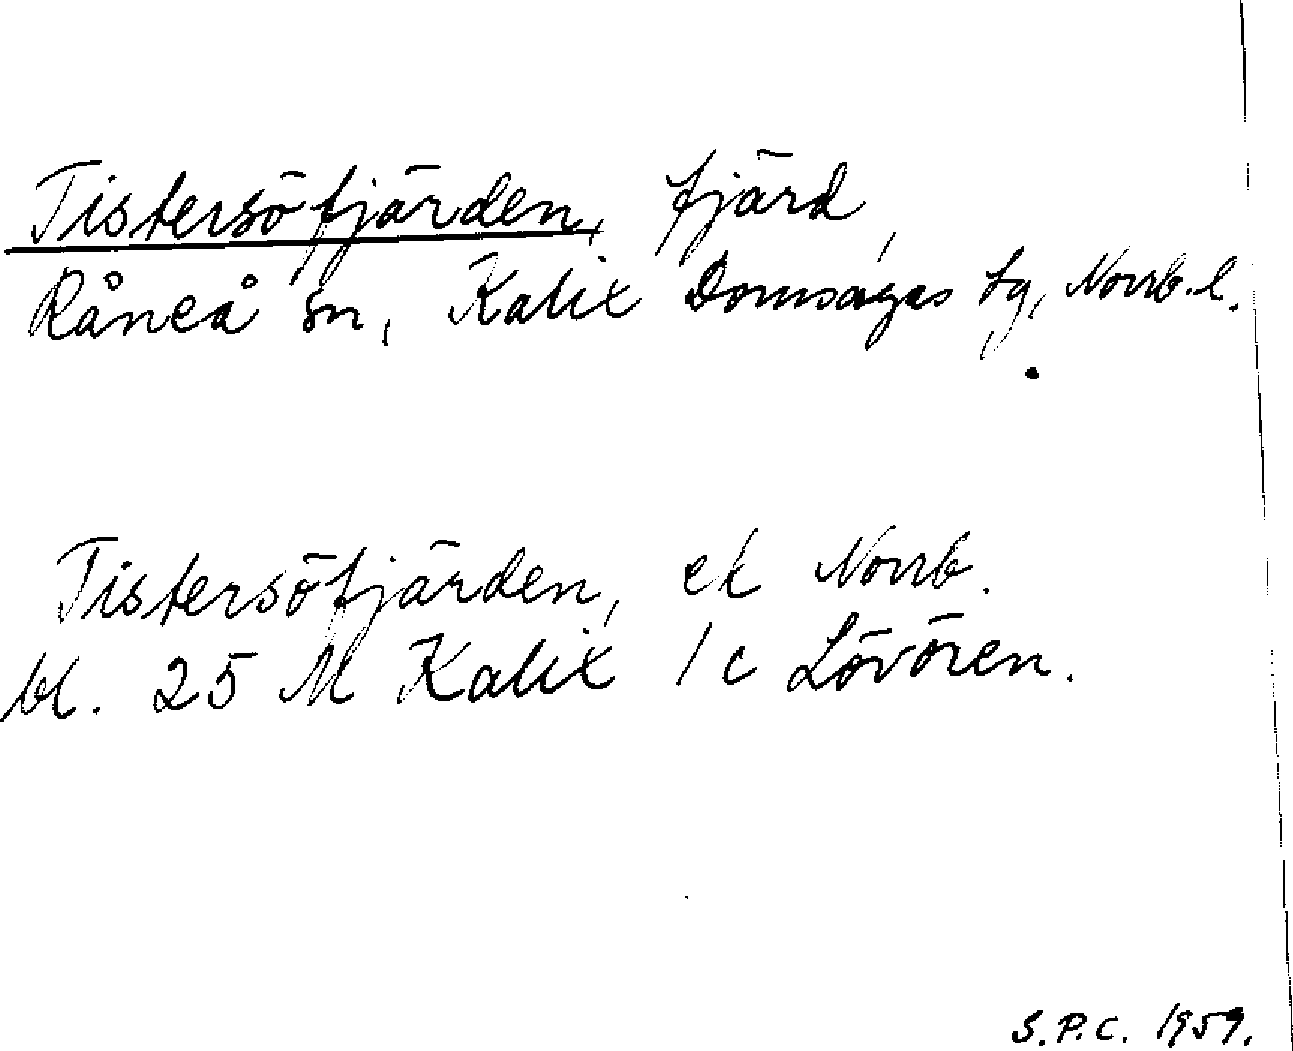 Tistersöfjärden, fjärd,
Råneå sn, Kalix Domsagas tg, Norrb.l.
Tistersöfjärden, ek Norrb.
bl. 25 M Kalix 1c Lövören.
S.P.C. 1959.